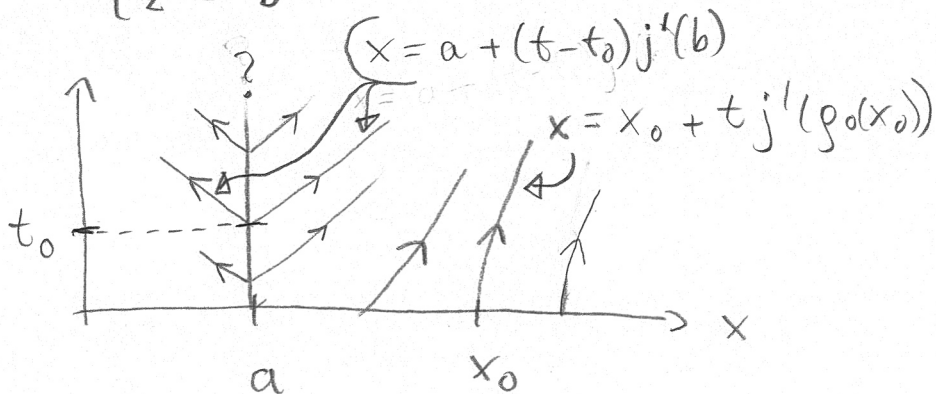 ?
x = a + (t-t₀) j'(b)
x = x₀ + t j'(ρ₀(x₀))
t₀
x
a
x₀